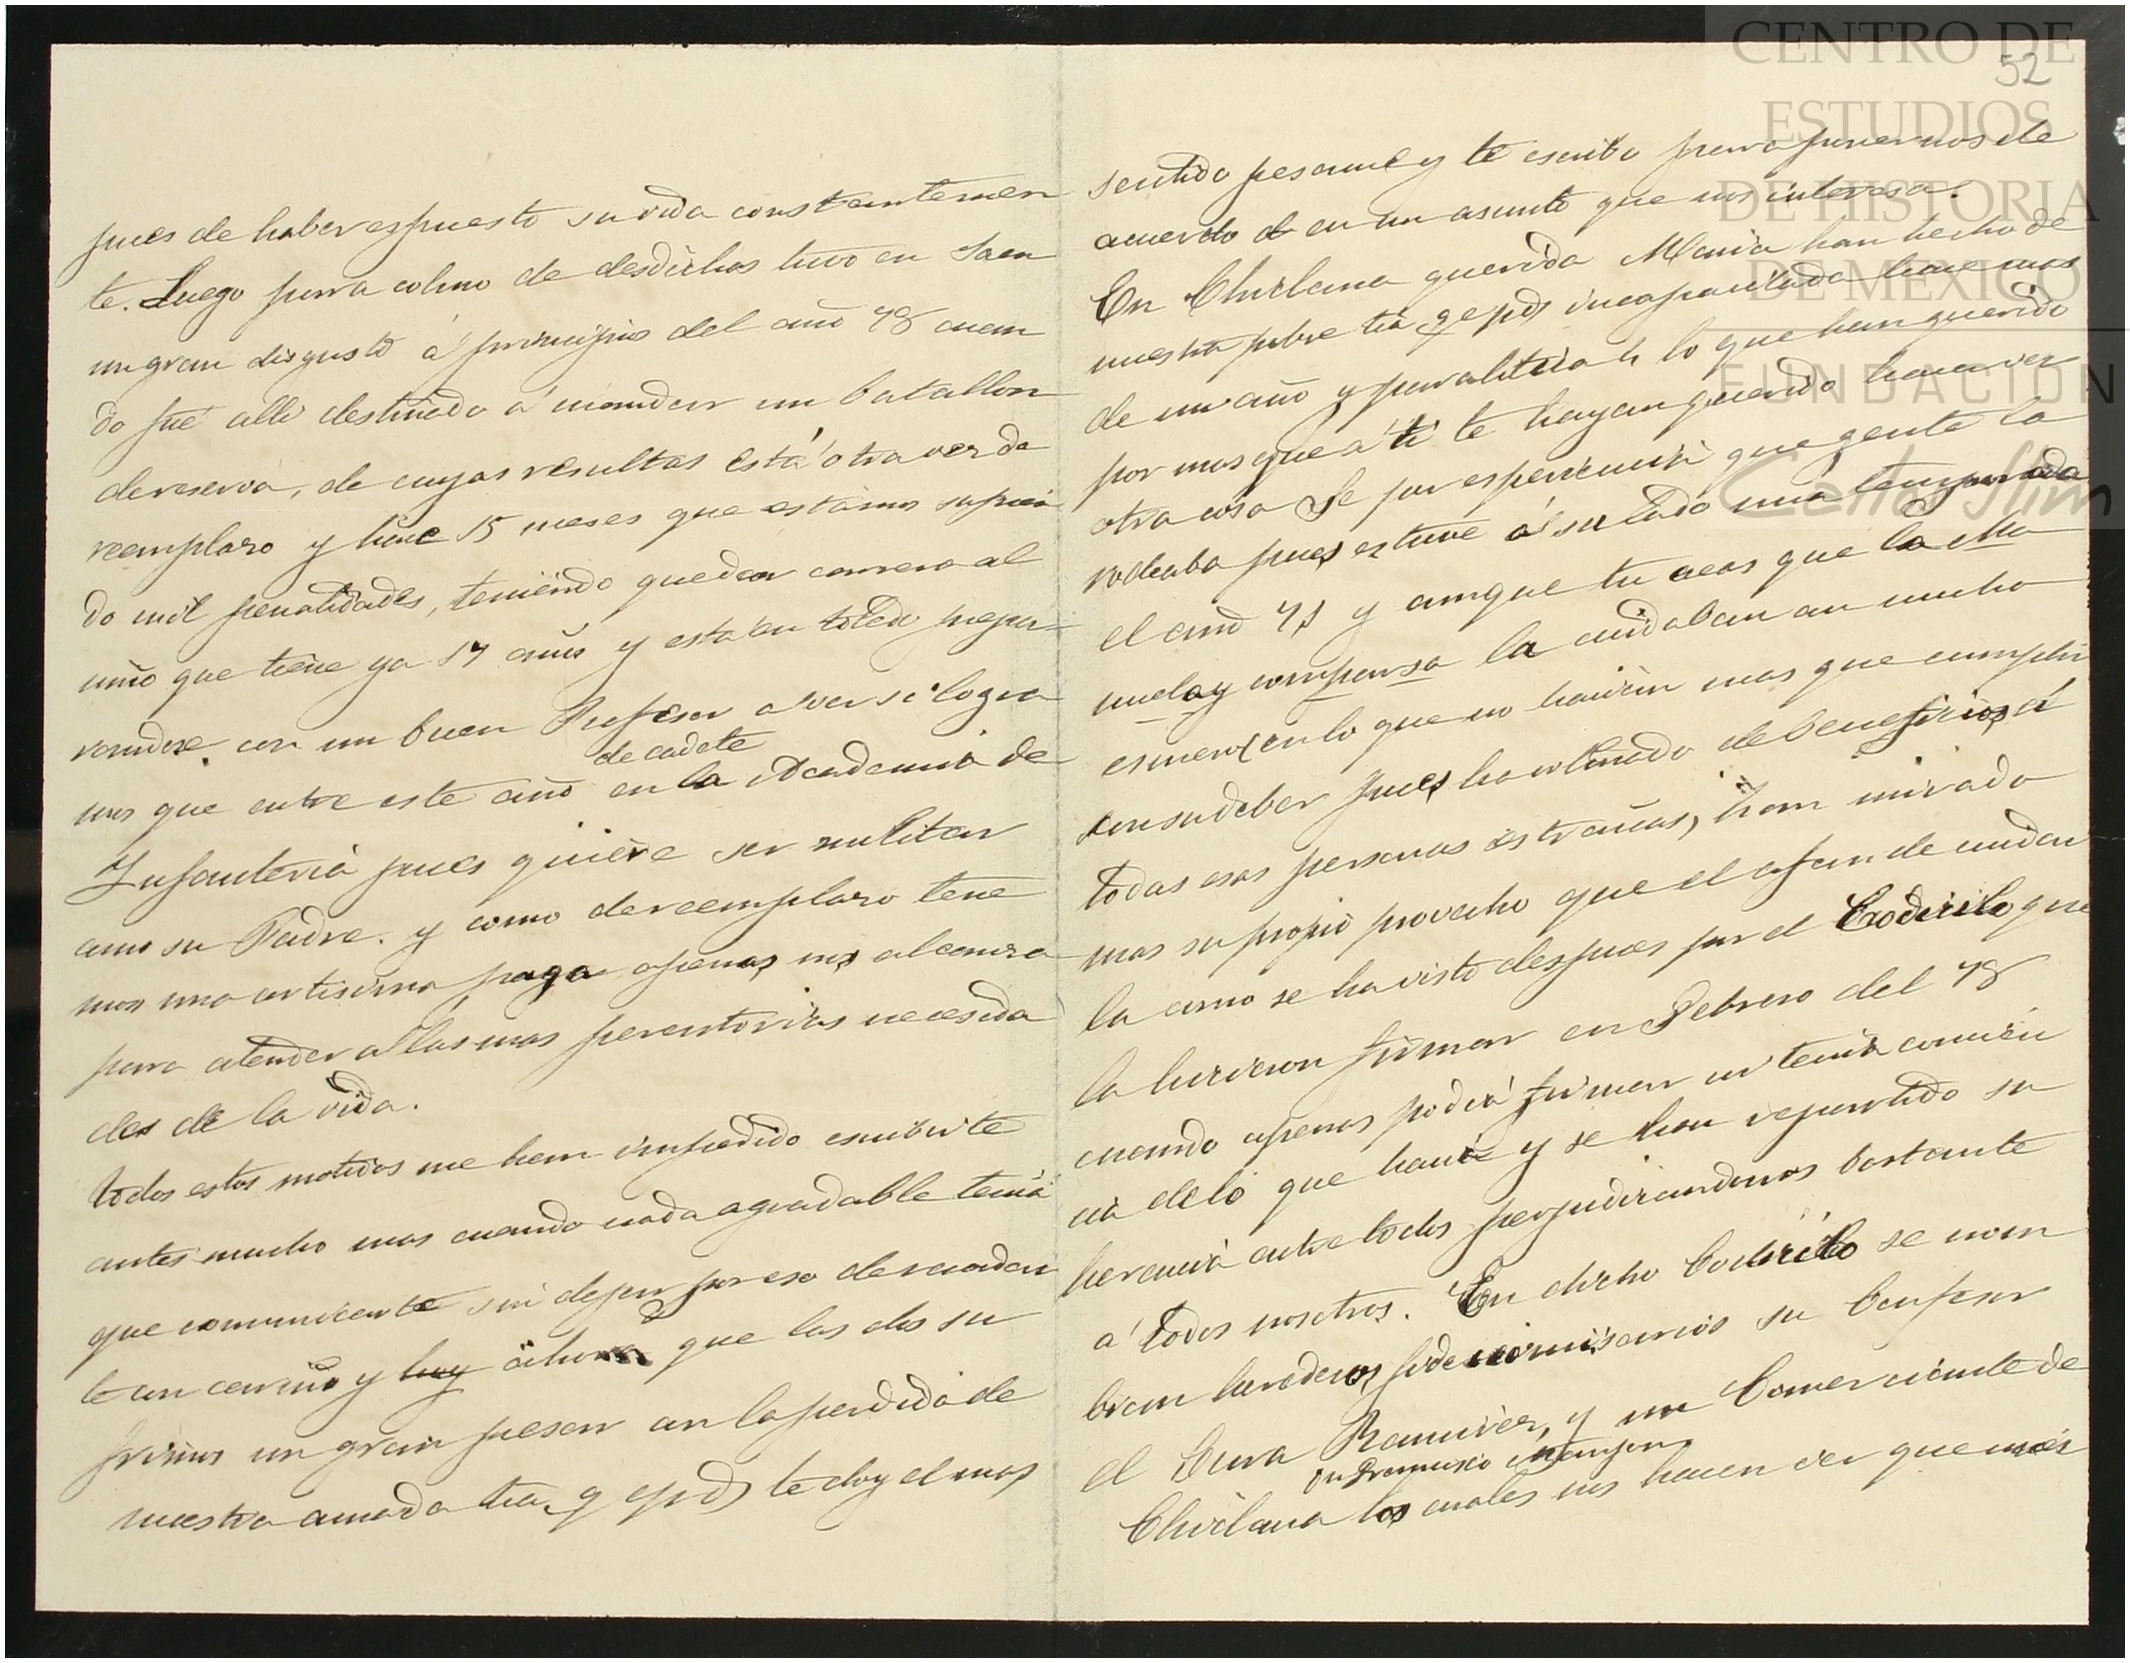 pues de haber espuesto su vida constantemen
te. Luego para colmo de desdichas tuvo en Jaen
un gran disgusto á principios del año 78 cuan
do fué alli destinado á mandar un batallon
de reserva, de cuyas resultas está otra vez de
reemplazo y hace 15 meses que estamos sufrien
do mil penalidades, teniendo que dar carrera al
niño que tiene ya 17 años y está en toledo prepa
randose con un buen Profesor a ver si logra
de cadete
mos que entre este año en la Academia de
Infanteria pues quiere ser militar
como su Padre. y como de reemplazo tene
mos una cortisima paga apenas nos alcanza
para atender a las mas perentorias necesida
des de la vida.
todos estos motivos me han impedido escribirte
antes mucho mas cuando nada agradable tenia
que comunicarte sin dejar por eso de recordar
te con cariño y hoy ahora que las dos su
frimos un gran pesar con la perdida de
nuestra amada tia, q e p d, te doy el mas
52
sentido pesame y te escribo para ponernos de
acuerdo en un asunto que nos interesa.
En Chiclana querida Maria han hecho de
nuestra pobre tia q e p d incapacitada hace mas
de un año y paralitica lo que han querido
por mas que a ti te hayan querido hacer ver
otra cosa Se por esperiencia que gente la
rodeaba pues estuve á su lado una temporada
el año 71 y aunque tu creas que la Ma
nuela y comparsa la cuidaban con mucho
esmero en lo que no hacian mas que cumplir
con su deber pues ha colmado de beneficios á
todas esas personas estrañas, han mirado
mas su propio provecho que el afan de cuidar
la como se ha visto despues por el Codicilo que
la hicieron firmar en Febrero del 78
cuando apenas podia firmar ni tenia concien
cia de lo que hacia y se han repartido su
herencia entre todos perjudicandonos bastante
á todos nosotros. En dicho Codicilo se nom
bran herederos fideicomisarios su Confesor
el Cura Ramirez, y un Comerciante de
Chiclana los cuales nos hacen ver que
CENTRO DE
ESTUDIOS
DE HISTORIA
DE MEXICO
FUNDACIÓN
Carlos Slim